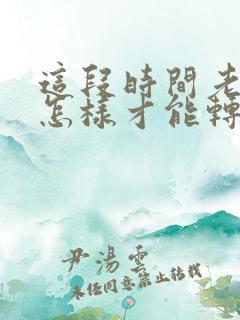 這段時間老
怎樣才能轉
尹湯雲
未经同意禁止转载